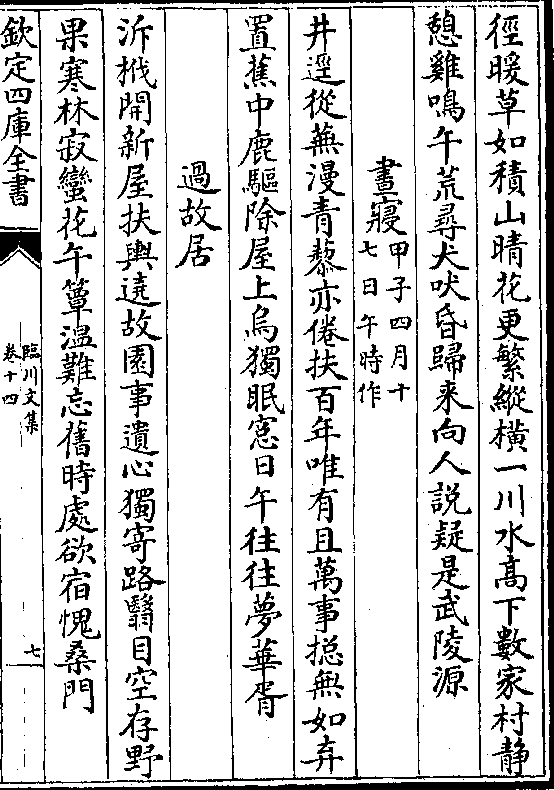 徑暖草如積山晴花更繁縱横一川水髙下數家村静
憩雞鳴午荒尋犬吠昏歸来向人說疑是武陵源
晝寢甲子四月十
七日午時作
井逕從蕪漫青藜亦倦扶百年唯有且萬事揔無如弃
置蕉中鹿驅除屋上烏獨眠窓日午往往夢華胥
過故居
泝栰開新屋扶輿遶故園事遺心獨寄路翳目空存野
果寒林寂蠻花午簟温難忘舊時處欲宿愧桑門
欽定四庫全書
臨川文集
卷十四
七